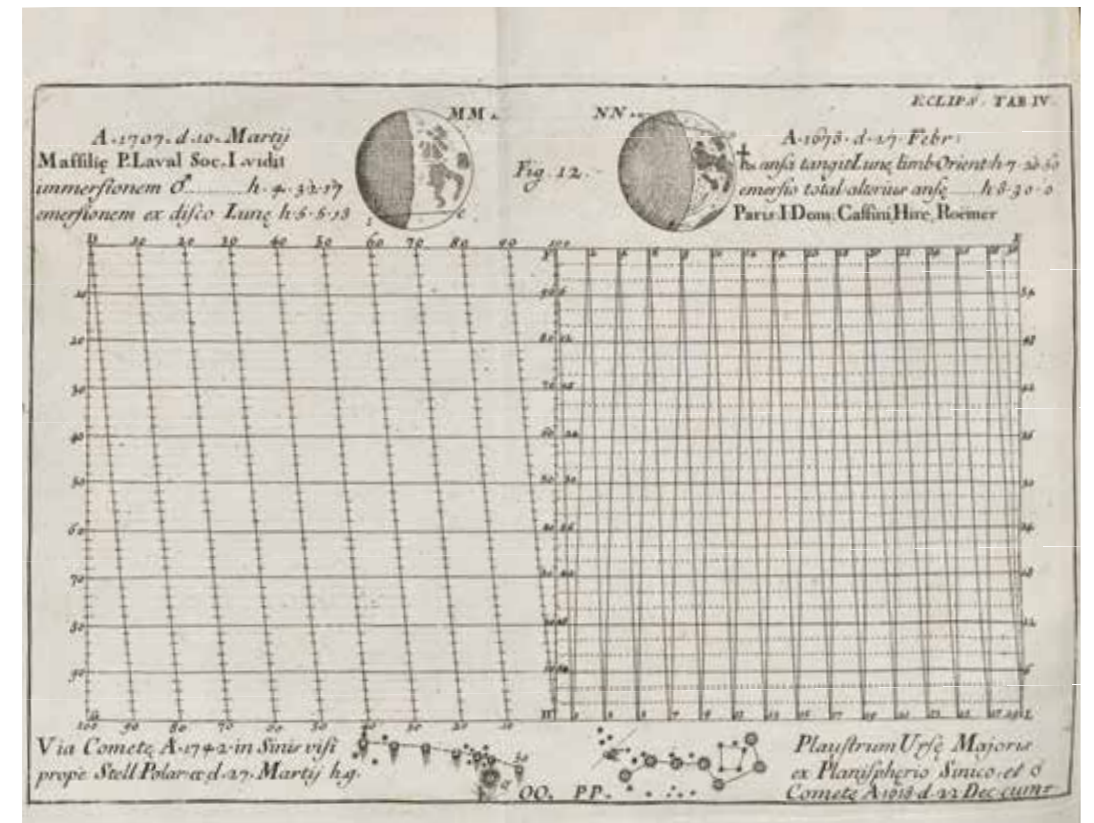 ECLIPS. TAB IV.
A. 1707. d. 10. Martij
Massilię P. Laval Soc. I. vidit
immersionem ♂ ......... h. 4. 32. 17
emersionem ex disco Lunę h. 5. 5. 13
MM.
Fig. 12.
NN.
A. 1678. d. 27. Febr.
ansa tangit Lunę limb Orient h. 7.
emersio total alterius ansę ..... h 8. 30. 0
Paris. I Dom. Cassini, Hire, Roemer
10 20 30 40 50 60 70 80 90 100
10
20
30
40
50
60
70
80
90
100 90 80 70 60 50 40 30 20 10
54
48
42
36
30
24
18
12
6
Via Cometę A. 1742. in Sinis visi
prope Stell Polar. æ d. 27. Martij h. 9.
OO.
PP.
Plaustrum Ursę Majoris
ex Planispherio Sinico, et ☌
Cometę A. 1618. d. 22 Dec. cum